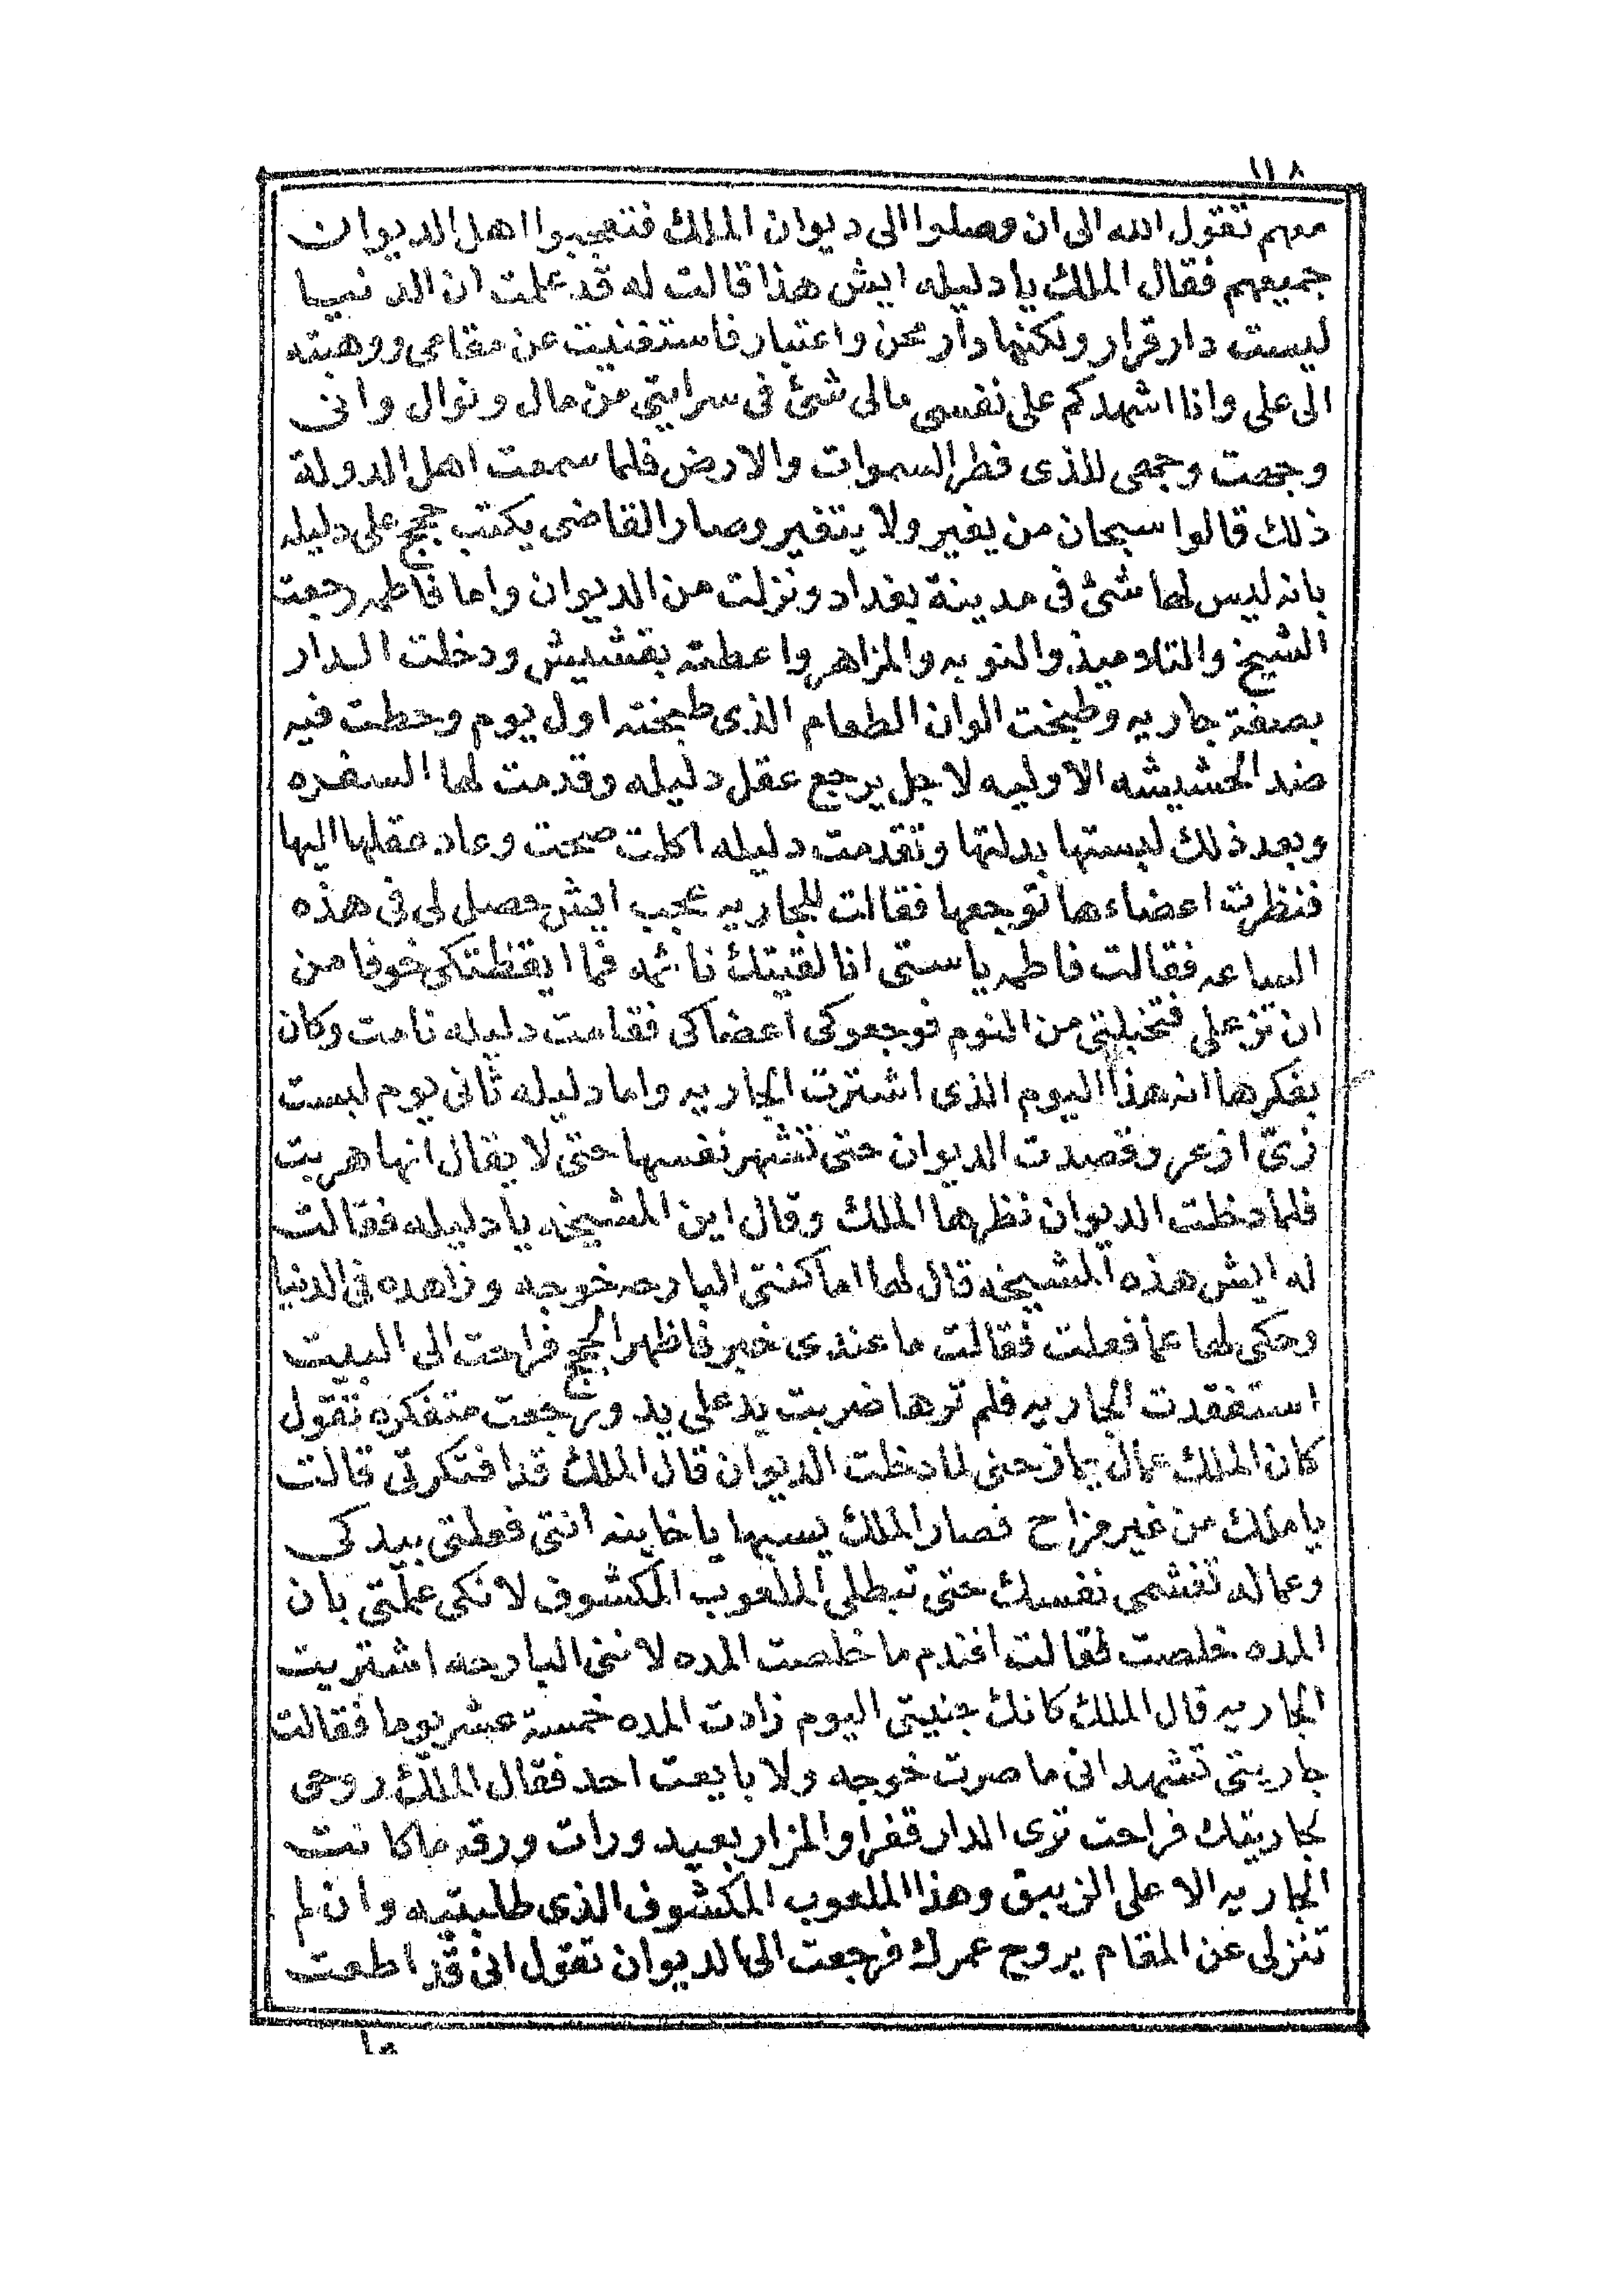 ١١٨
معهم تقول الله الى ان وصلوا الى ديوان الملك فتعجبوا اهل الديوان
جميعهم فقال الملك يا دليله ايش هذا قالت له قد علمت ان الدنيا
ليست دار قرار ولكنها دار محن واعتبار فاستغنيت عن مقامى ووهبته
الى على وانا اشهدكم على نفسى مالى شئ فى سرايتى من مال ونوال وانى
وجهت وجهى للذى فطر السموات والارض فلما سمعت اهل الدولة
ذلك قالوا سبحان من يغير ولا يتغير وصار القاضى يكتب حجج على دليله
بانه ليس لها شئ فى مدينة بغداد ونزلت من الديوان واما فاطمه رجعت
الشيخ والتلاميذ والنوبه والمزاهر واعطته بقشيش ودخلت الدار
بصفة جاريه وطبخت الوان الطعام الذى طبخته اول يوم وحطت فيه
ضد الحشيشه الاوليه لاجل يرجع عقل دليله وقدمت لها السفره
وبعد ذلك لبستها بدلتها وتقدمت دليله اكلت صحت وعاد عقلها اليها
فنظرت اعضاءها توجعها فقالت للجاريه عجب ايش حصل لى فى هذه
الساعه فقالت فاطمه ياستى انا لقيتك نائمه فما ايقظتكى خوفا من
ان تزعلى فتخبلتى من النوم توجعوكى اعضاكى فقامت دليله نامت وكان
بفكرها انه هذا اليوم الذى اشترت الجاريه واما دليله ثانى يوم لبست
زى ازعر وقصدت الديوان حتى تشهر نفسها حتى لا يقال انها هربت
فلما دخلت الديوان نظرها الملك وقال اين المشيخه يا دليله فقالت
له ايش هذه المشيخه قال لها اما كنتى البارحه خوجه وزاهده فى الدنيا
وحكى لها عما فعلت فقالت ما عندى خبر فاظهر الحجج فراحت الى البيت
استفقدت الجاريه فلم ترها ضربت يد على يد ورجعت متفكره تقول
كان الملك عمال يمازحنى لما دخلت الديوان قال الملك قد افتكرتى قالت
يا ملك من غير مزاح فصار الملك يسبها يا خاينه انتى فعلتى بيدكى
وعماله تغشمى نفسك حتى تبطلى الملعوب المكشوف لانكى علمتى بان
المده خلصت فقالت افندم ما خلصت المده لاننى البارحه اشتريت
الجاريه قال الملك كانك جنيتى اليوم زادت المده خمسة عشر يوما فقالت
جاريتى تشهد انى ما صرت خوجه ولا بايعت احد فقال الملك روحى
لجاريتك فراحت ترى الدار قفرا والمزار بعيد ورات ورقه ما كانت
الجاريه الا على الزيبق وهذا الملعوب المكشوف الذى طلبتيه وان لم
تنزلى عن المقام يروح عمرك فرجعت الى الديوان تقول انى قد اطعت